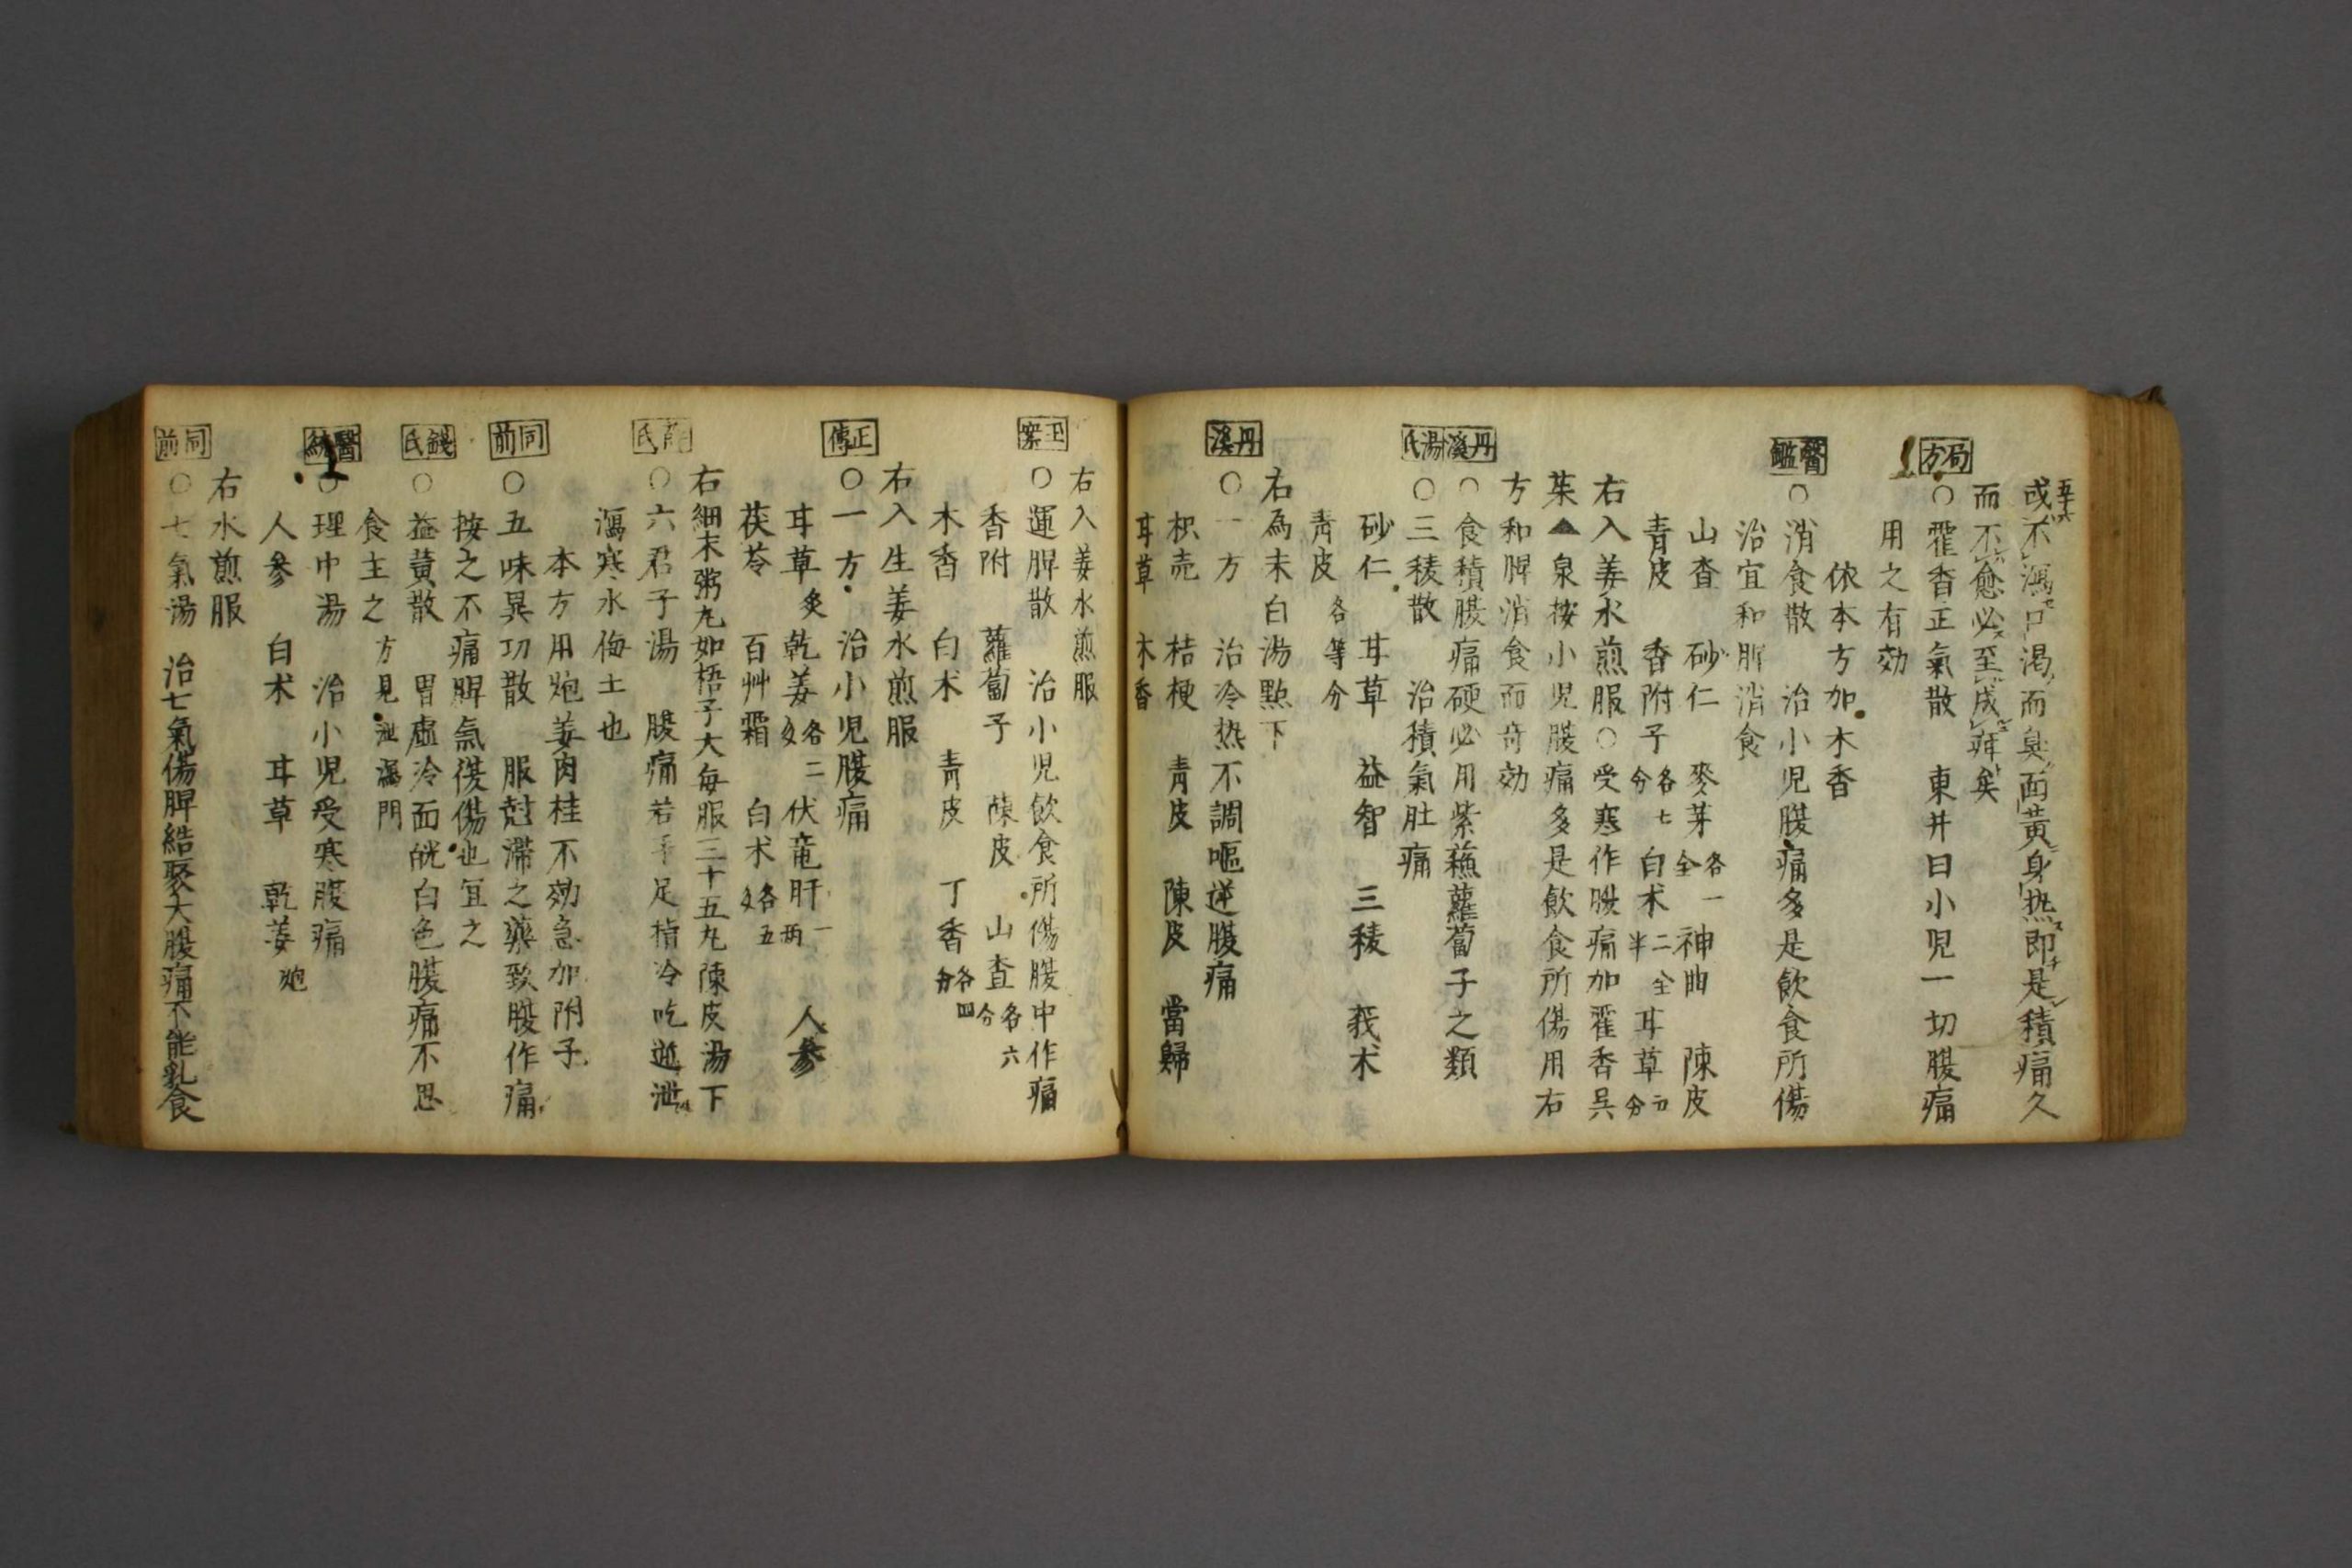 五十六
或不瀉口渴而臭面黄身热即是積痛久
而不愈必至成疳矣
局方
○霍香正氣散 東井曰小児一切腹痛
用之有効
依本方加木香
醫鑑
○消食散 治小児腹痛多是飲食所傷
治宜和脾消食
山査 砂仁 麥芽各一全 神曲 陳皮
青皮 香附子各七分 白术二全半 耳草五分
右入姜水煎服○受寒作腹痛加霍香吳
茱▲泉按小児腹痛多是飲食所傷用右
方和脾消食而奇効
丹溪
○食積腹痛硬必用紫蘓蘿蔔子之類
湯氏
○三稜散 治積氣肚痛
砂仁 耳草 益智 三稜 莪术
青皮各等分
右為末白湯點下
丹溪
○一方 治冷热不調嘔逆腹痛
枳壳 桔梗 青皮 陳皮 當歸
耳草 木香
右入姜水煎服
○運脾散 治小児飲食所傷腹中作痛
香附 蘿蔔子 陳皮 山查各六分
木香 白术 青皮 丁香各四分
右入生姜水煎服
正傳
○一方 治小児腹痛
耳草炙 乾姜各二戔 伏竜肝一两 人參
茯苓 百艸霜 白术各五戔
右細末粥丸如梧子大每服三十五丸陳皮湯下
○六君子湯 腹痛若手足指冷吃逆泄
瀉寒水侮土也
本方用炮姜肉桂不効急加附子
同前
○五味異功散 服尅滞之藥致腹作痛
按之不痛脾氣復傷也宜之
錢氏
○益黄散 胃虛冷面㿠白色腹痛不思
食主之 方見泄瀉門
醫統
○理中湯 治小児受寒腹痛
人參 白术 耳草 乾姜炮
右水煎服
同前
○七氣湯 治七氣傷脾結聚大腹痛不能乳食